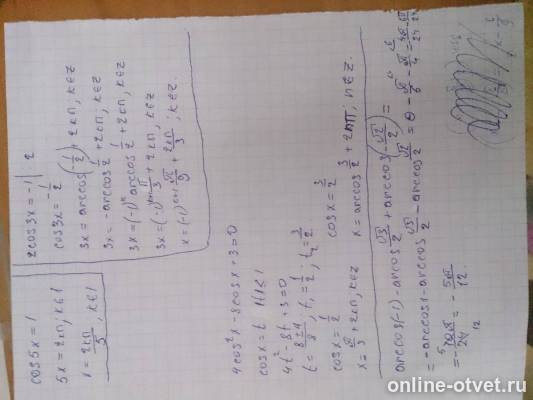 cos5x = 1
5x = 2πn, к∈1
x = 2πn/5, к∈1
2cos3x = -1 | 2
cos3x = -1/2
3x = arccos(-1/2) + 2πn, к∈z
3x = -arccos 1/2 + 2πn, к∈z
3x = (-1)ᵏ arccos 1/2 + 2πn, к∈z
3x = (-1)ᵏ⁺¹ π/3 + 2πn, к∈z
x = (-1)ᵏ⁺¹ π/9 + 2πn/3, к∈z.
4cos²x - 8cosx + 3 = 0
cosx = t, |t| ≤ 1
4t² - 8t + 3 = 0
t = 8±4/8; t₁ = 1/2; t₂ = 3/2
cosx = 1/2 cosx = 3/2
x = π/3 + 2πn, к∈z x = arccos 3/2 + 2πn, n∈z.
arccos(-1) - arcos √3/2 + arccos(-√2/2) =
= -arccos1 - arccos √3/2 - arccos √2/2 = 0 - π/6 - π/4 =
= - 10π/24 = - 5π/12.
online-otvet.ru